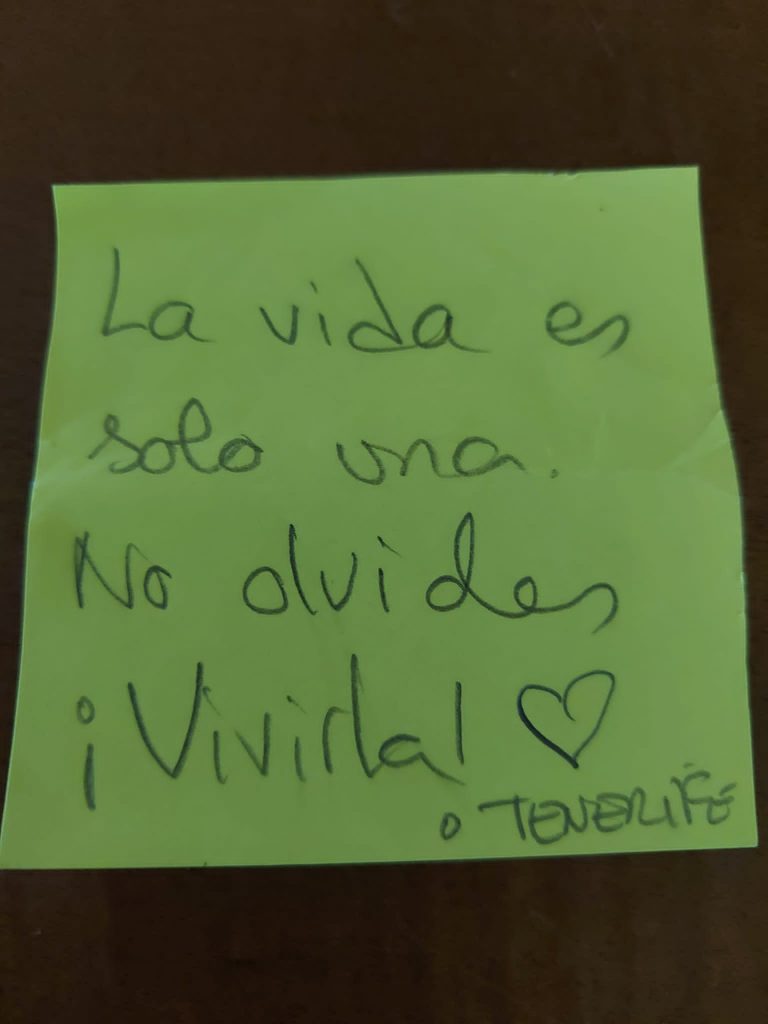 La vida es
solo una.
No olvides
¡Vivirla! ♡
TENERIFE